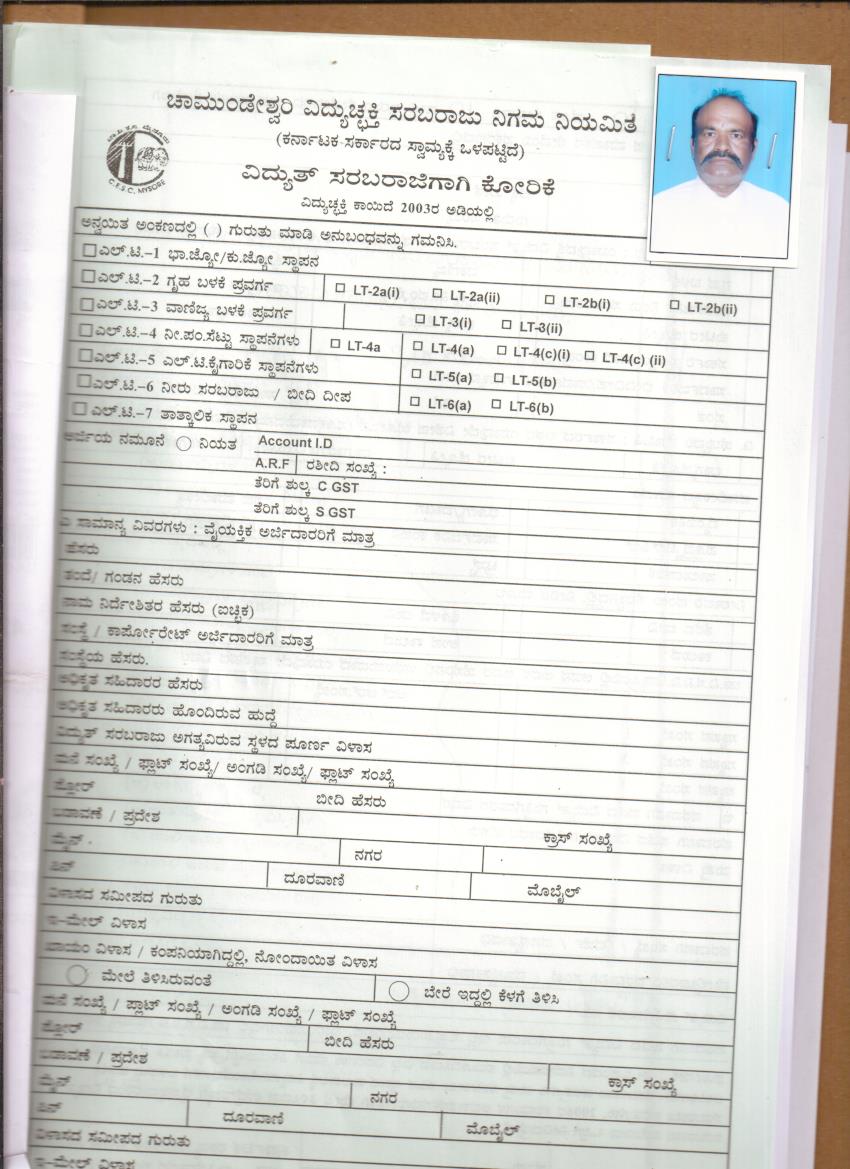 ಚಾಮುಂಡೇಶ್ವರಿ ವಿದ್ಯುಚ್ಛಕ್ತಿ ಸರಬರಾಜು ನಿಗಮ ನಿಯಮಿತ
(ಕರ್ನಾಟಕ ಸರ್ಕಾರದ ಸ್ವಾಮ್ಯಕ್ಕೆ ಒಳಪಟ್ಟಿದೆ)
ವಿದ್ಯುತ್ ಸರಬರಾಜಿಗಾಗಿ ಕೋರಿಕೆ
C.E.S.C. MYSORE
ವಿದ್ಯುಚ್ಛಕ್ತಿ ಕಾಯಿದೆ 2003ರ ಅಡಿಯಲ್ಲಿ
ಅನ್ವಯಿತ ಅಂಕಣದಲ್ಲಿ ( ) ಗುರುತು ಮಾಡಿ ಅನುಬಂಧವನ್ನು ಗಮನಿಸಿ.
ಎಲ್.ಟಿ.–1 ಭಾ.ಜ್ಯೋ/ಕು.ಜ್ಯೋ ಸ್ಥಾಪನ
ಎಲ್.ಟಿ.–2 ಗೃಹ ಬಳಕೆ ಪ್ರವರ್ಗ LT-2a(i) LT-2a(ii) LT-2b(i) LT-2b(ii)
ಎಲ್.ಟಿ.–3 ವಾಣಿಜ್ಯ ಬಳಕೆ ಪ್ರವರ್ಗ LT-3(i) LT-3(ii)
ಎಲ್.ಟಿ.–4 ನೀ.ಪಂ.ಸೆಟ್ಟು ಸ್ಥಾಪನೆಗಳು LT-4a LT-4(a) LT-4(c)(i) LT-4(c) (ii)
ಎಲ್.ಟಿ.–5 ಎಲ್.ಟಿ.ಕೈಗಾರಿಕೆ ಸ್ಥಾಪನೆಗಳು LT-5(a) LT-5(b)
ಎಲ್.ಟಿ.–6 ನೀರು ಸರಬರಾಜು / ಬೀದಿ ದೀಪ LT-6(a) LT-6(b)
ಎಲ್.ಟಿ.–7 ತಾತ್ಕಾಲಿಕ ಸ್ಥಾಪನ
ಅರ್ಜಿಯ ನಮೂನೆ ನಿಯತ Account I.D
A.R.F ರಶೀದಿ ಸಂಖ್ಯೆ :
ತೆರಿಗೆ ಶುಲ್ಕ C GST
ತೆರಿಗೆ ಶುಲ್ಕ S GST
ಎ ಸಾಮಾನ್ಯ ವಿವರಗಳು : ವೈಯಕ್ತಿಕ ಅರ್ಜಿದಾರರಿಗೆ ಮಾತ್ರ
ಹೆಸರು
ತಂದೆ/ ಗಂಡನ ಹೆಸರು
ನಾಮ ನಿರ್ದೇಶಿತರ ಹೆಸರು (ಐಚ್ಛಿಕ)
ಸಂಸ್ಥೆ / ಕಾರ್ಪೋರೇಟ್ ಅರ್ಜಿದಾರರಿಗೆ ಮಾತ್ರ
ಸಂಸ್ಥೆಯ ಹೆಸರು.
ಅಧಿಕೃತ ಸಹಿದಾರರ ಹೆಸರು
ಅಧಿಕೃತ ಸಹಿದಾರರು ಹೊಂದಿರುವ ಹುದ್ದೆ
ವಿದ್ಯುತ್ ಸರಬರಾಜು ಅಗತ್ಯವಿರುವ ಸ್ಥಳದ ಪೂರ್ಣ ವಿಳಾಸ
ಮನೆ ಸಂಖ್ಯೆ / ಪ್ಲಾಟ್ ಸಂಖ್ಯೆ/ ಅಂಗಡಿ ಸಂಖ್ಯೆ/ ಫ್ಲಾಟ್ ಸಂಖ್ಯೆ
ಫ್ಲೋರ್ ಬೀದಿ ಹೆಸರು
ಬಡಾವಣೆ / ಪ್ರದೇಶ ಕ್ರಾಸ್ ಸಂಖ್ಯೆ
ಮೈನ್ ನಗರ
ಪಿನ್ ದೂರವಾಣಿ ಮೊಬೈಲ್
ವಿಳಾಸದ ಸಮೀಪದ ಗುರುತು
ಇ–ಮೇಲ್ ವಿಳಾಸ
ಖಾಯಂ ವಿಳಾಸ / ಕಂಪನಿಯಾಗಿದ್ದಲ್ಲಿ, ನೋಂದಾಯಿತ ವಿಳಾಸ
ಮೇಲೆ ತಿಳಿಸಿರುವಂತೆ ಬೇರೆ ಇದ್ದಲ್ಲಿ ಕೆಳಗೆ ತಿಳಿಸಿ
ಮನೆ ಸಂಖ್ಯೆ / ಪ್ಲಾಟ್ ಸಂಖ್ಯೆ / ಅಂಗಡಿ ಸಂಖ್ಯೆ / ಫ್ಲಾಟ್ ಸಂಖ್ಯೆ
ಫ್ಲೋರ್ ಬೀದಿ ಹೆಸರು
ಬಡಾವಣೆ / ಪ್ರದೇಶ ಕ್ರಾಸ್ ಸಂಖ್ಯೆ
ಮೈನ್ ನಗರ
ಪಿನ್ ದೂರವಾಣಿ ಮೊಬೈಲ್
ವಿಳಾಸದ ಸಮೀಪದ ಗುರುತು
ಇ–ಮೇಲ್ ವಿಳಾಸ